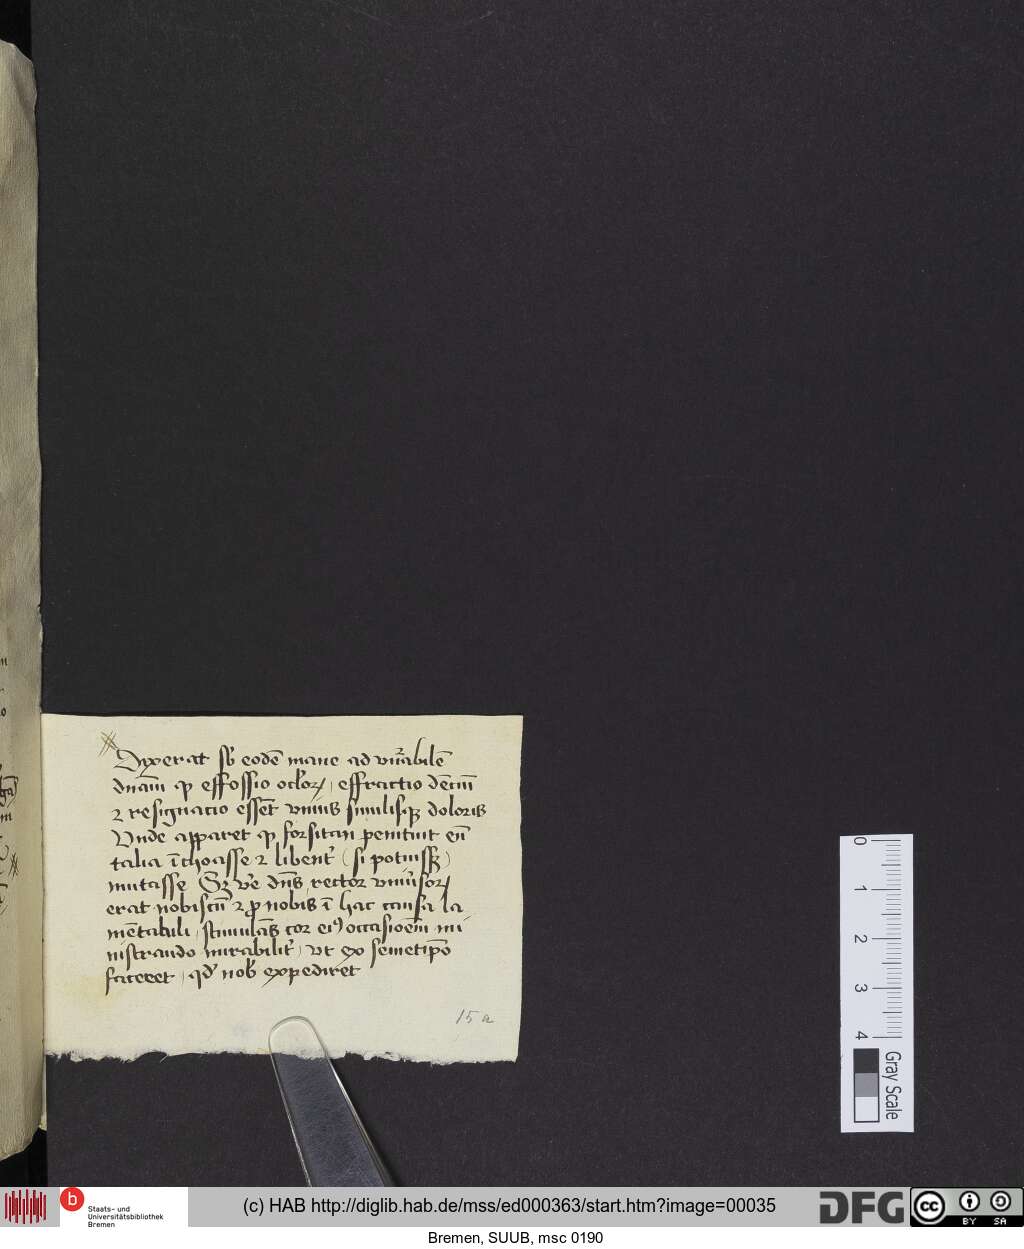 Dixerat sb̉ eodē mane ad vn̄rabilē
dnām ꝙ effossio ocl̓oꝝ, effractio dēcm̄
⁊ resignacio essēt vnius similisqꝫ doloris
Vnde apparet ꝙ forsitan penituit eū
talia īchoasse ⁊ libent̓ (si potuissꝫ)
mutasse Sꝫ v̓e dn̄s rector vniu̓soꝝ
erat nobiscū ⁊ ꝓ nobis ī hac causa la
mētabili, stimulās cor eiꝰ occasioēm mi
nistrando mirabilit̓, vt ex semetip̄o
faceret, qd̓ nob̓ expediret
15a
0
1
2
3
4
Gray Scale
b
Staats- und
Universitätsbibliothek
Bremen
(c) HAB http://diglib.hab.de/mss/ed000363/start.htm?image=00035
DFG
cc
BY SA
Bremen, SUUB, msc 0190